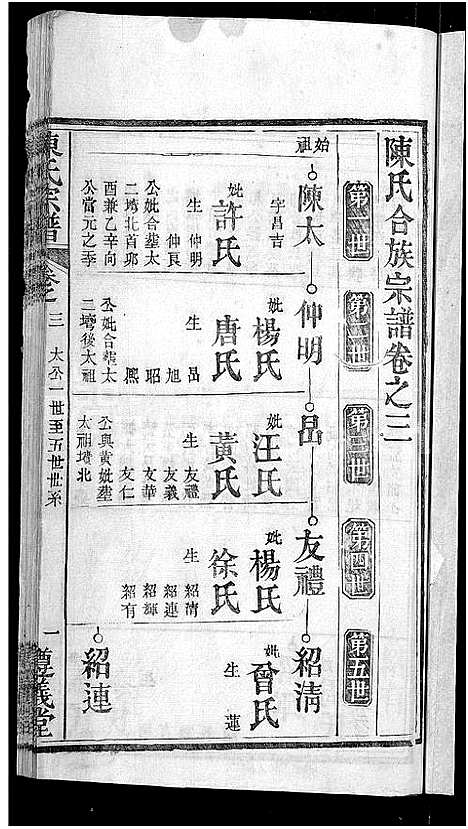 陳氏合族宗譜卷之三
第一世
第二世
第三世
第四世
第五世
始祖
陳太
字昌吉
妣許氏
生仲明
仲良
公妣合塟太
二塆北首卯
酉兼乙辛向
公當元之季
仲明
妣楊氏
唐氏
生昷
旭
昭
熈
公妣合塟太
二塆後太祖
昷
妣汪氏
黃氏
生友禮
友義
友華
友仁
公與黃妣塟
太祖墳北
友禮
妣楊氏
徐氏
生紹清
紹連
紹輝
紹有
紹清
妣曾氏
生蓮
紹連
陳氏宗譜
卷之三
太公一世至五世世系
一
尊義堂